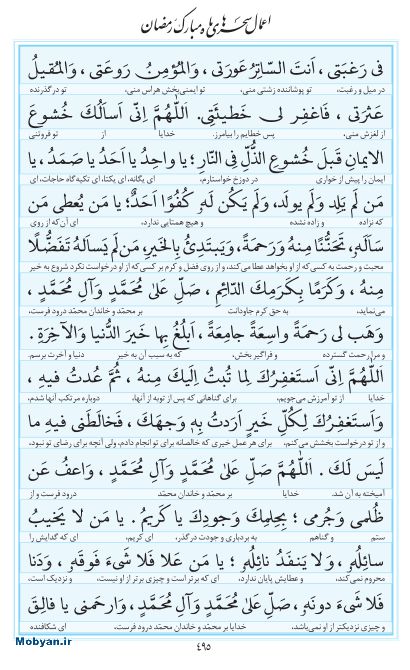 اعمال سحرهای ماه مبارک رمضان
فی رَغبَتی ، اَنتَ السّاتِرُ عَورَتی ، وَالمُؤمِنُ رَوعَتی ، وَالمُقیلُ
در میل و رغبت، تو پوشاننده زشتی منی، تو ایمنی بخش هراس منی، تو درگذرنده
عَثرَتی ، فَاغفِر لی خَطیئَتی. اَللّهُمَّ اِنّی اَسأَلُكَ خُشوعَ
از لغزش منی. پس خطایم را بیامرز. خدایا از تو فروتنی
الایمانِ قَبلَ خُشوعِ الذُّلِّ فِی النّارِ؛ یا واحِدُ یا اَحَدُ یا صَمَدُ، یا
ایمان را پیش از خواری در دوزخ خواستارم، ای یگانه، ای یکتا، ای تکیه‌گاه حاجات، ای
مَن لَم یَلِد وَلَم یولَد، وَلَم یَكُن لَهو كُفُوًا اَحَدٌ؛ یا مَن یُعطی مَن
که نزاده و زاده نشده و هیچ همتایی ندارد، ای آن‌که از روی
سَأَلَهو تَحَنُّنًا مِنهُ وَرَحمَةً، وَیَبتَدِئُ بِالخَیرِ مَن لَم یَسأَلهُ تَفَضُّلًا
محبت و رحمت به کسی که از او بخواهد عطا می‌کند، و از روی فضل و کرم بر کسی که از او درخواست نکرد شروع به خیر
مِنهُ ، وَكَرَمًا بِكَرَمِكَ الدّائِمِ ، صَلِّ عَلىٰ مُحَمَّدٍ وَآلِ مُحَمَّدٍ ،
می‌نماید، به حق کرم جاودانت بر محمّد و خاندان محمّد درود فرست،
وَهَب لی رَحمَةً واسِعَةً جامِعَةً ، اَبلُغُ بِها خَیرَ الدُّنیا وَالآخِرَةِ.
و مرا رحمت گسترده و فراگیر بخش، که به سبب آن به خیر دنیا و آخرت برسم.
اَللّهُمَّ اِنّی اَستَغفِرُكَ لِما تُبتُ اِلَیكَ مِنهُ ، ثُمَّ عُدتُ فیهِ ،
خدایا از تو آمرزش می‌جویم، برای گناهانی که پس از توبه از آنها، دوباره مرتکب آنها شدم.
وَاَستَغفِرُكَ لِكُلِّ خَیرٍ اَرَدتُ بِهی وَجهَكَ ، فَخالَطَنی فیهِ ما
و از تو درخواست بخشش می‌کنم، برای هر عمل خیری که خالصانه برای تو انجام دادم، ولی آنچه برای رضای تو نبود،
لَیسَ لَكَ . اَللّهُمَّ صَلِّ عَلىٰ مُحَمَّدٍ وَآلِ مُحَمَّدٍ ، وَاعفُ عَن
آمیخته به آن شد. خدایا بر محمّد و خاندان محمّد درود فرست و از
ظُلمی وَجُرمی ؛ بِحِلمِكَ وَجودِكَ یا كَریمُ . یا مَن لا یَخیبُ
ستم و گناهم به بردباری و جودت در گذر، ای کریم، ای که گدایش را
سائِلُهو ، وَلا یَنفَدُ نائِلُهو ؛ یا مَن عَلا فَلا شَیءَ فَوقَهو ، وَدَنا
محروم نمی‌کند، و عطایش پایان ندارد، ای که برتر است و چیزی برتر از او نیست، و نزدیک است،
فَلا شَیءَ دونَهو ، صَلِّ عَلىٰ مُحَمَّدٍ وَآلِ مُحَمَّدٍ ، وَارحَمنی یا فالِقَ
و چیزی نزدیکتر از او نمی‌باشد. خدایا بر محمّد و خاندان محمّد درود فرست، ای شکافنده
۴۹۵
Mobyan.ir